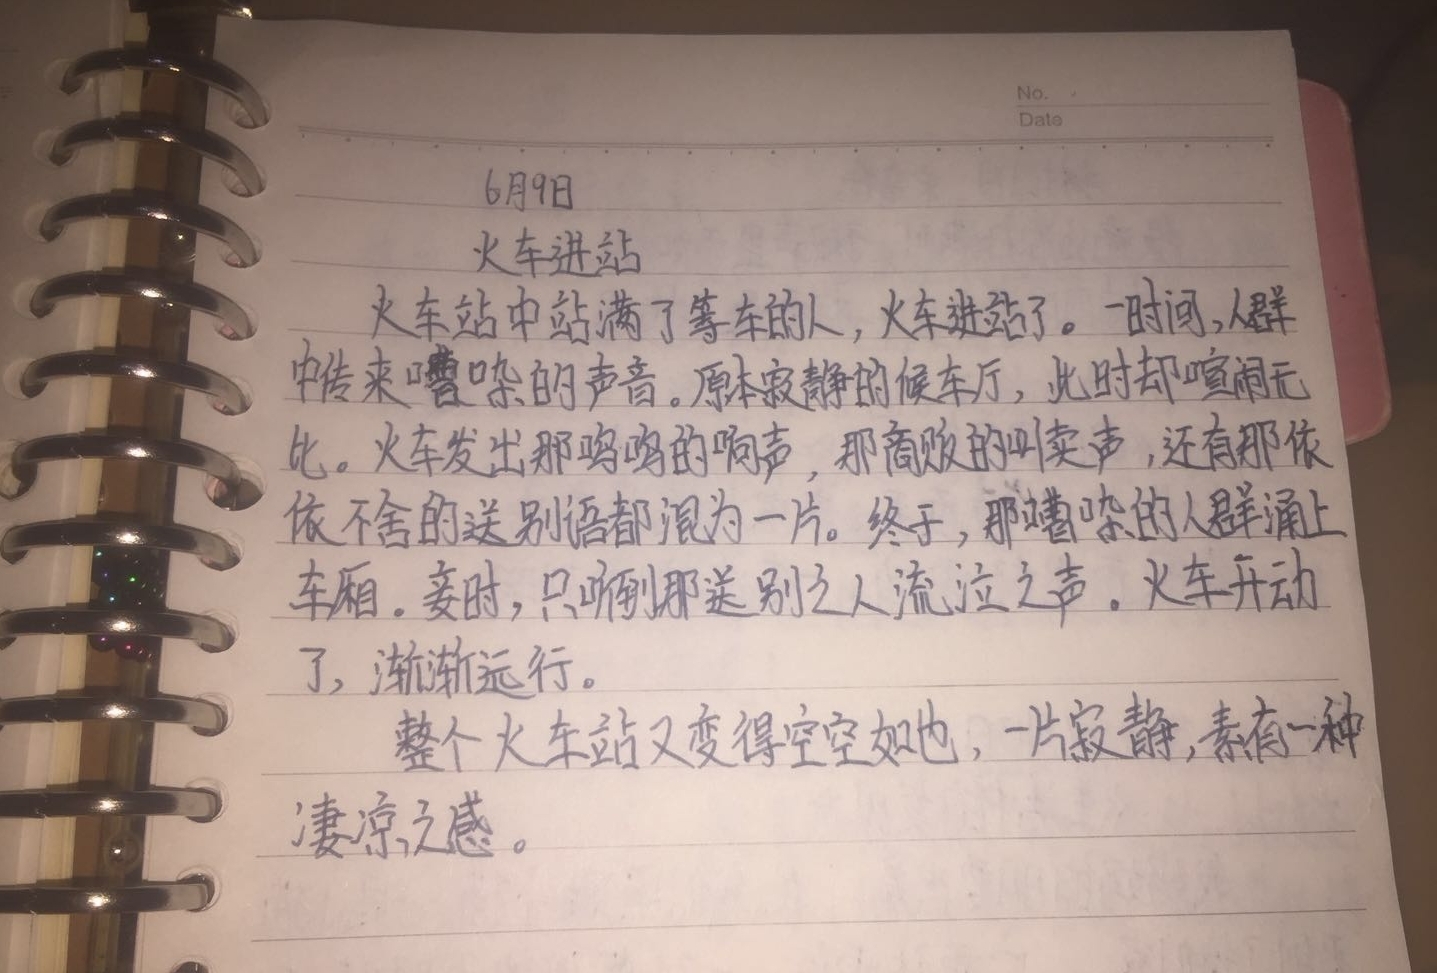 No.
Date
6月9日
火车进站
火车站中站满了等车的人，火车进站了。一时间，人群
中传来嘈杂的声音。原本寂静的候车厅，此时却喧闹无
比。火车发出那呜呜的响声，那商贩的叫卖声，还有那依
依不舍的送别语都混为一片。终于，那嘈杂的人群涌上
车厢。妾时，只听到那送别之人流泣之声。火车开动
了，渐渐远行。
整个火车站又变得空空如也，一片寂静，素有一种
凄凉之感。